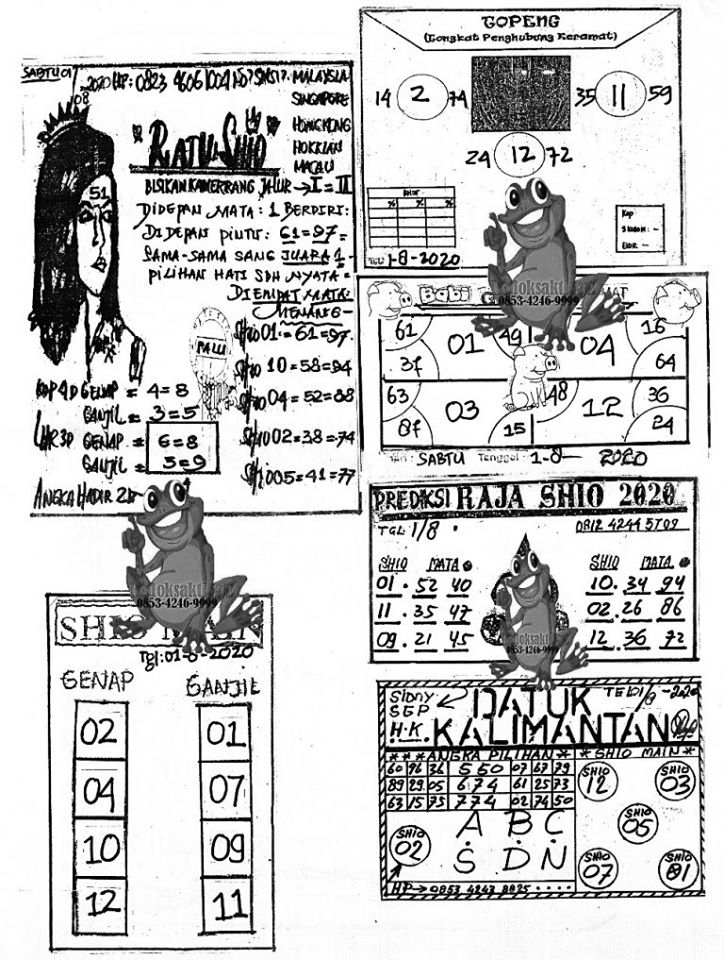 SABTU 01
-2020 HP: 0823 4606 1004 NO? SMS!?
MALAYSIA
SINGAPORE
HONGKONG
HOKKIAN
MACAU
108
RATU SHIO
51
BISIKAN KAMERRANG JALUR → I = III
DIDEPAN MATA: 1 BERDIRI:
DIDEPAN PINTU: 61=97=
SAMA-SAMA SANG JUARA 1-
PILIHAN HATI SDH NYATA=
DIEMPAT MATA:
MENANG-
PALU
SHIO 01=61=97
SHIO 10=58=94
SHIO 04=52=88
SHIO 02=38=74
SHIO 05=41=77
KOP 4D GENAP = 4=8
GANJIL = 3=5
GENAP = 6=8
GANJIL = 5=9
ANGKA HADIR 2D
TOPENG
(Tongkat Penghubung Keramat)
14 2 74
35 11 59
24 12 72
% % %
Kop
SHIO
EKOR: -
TGL: 1-8-2020
0853-4246-9999
Babi
61 01 49
37
04 16
64
63 03 15
87
48 12 36
24
SABTU Tanggal 1-8- 2020
PREDIKSI RAJA SHIO 2020
TGL 1/8
0812 4244 5709
SHIO MATA SHIO MATA
01. 52 40 10. 34 94
11. 35 47 02. 26 86
09. 21 45 12. 36 72
0853-4246-9999
0853-4246-9999
SHIO MAIN
Tgl: 01-8-2020
GENAP GANJIL
02 01
04 07
10 09
12 11
Sidny
SGP
H.K.
DATUK
KALIMANTAN
1/8 -2020
***ANGKA PILIHAN* *SHIO MAIN*
60 96 36 550 07 67 79
89 29 05 674 61 25 73
63 15 75 774 02 74 50
SHIO 02
A B C
S D N
SHIO 12
SHIO 03
SHIO 05
SHIO 07
SHIO 01
HP → 0853 4243 8825 ....